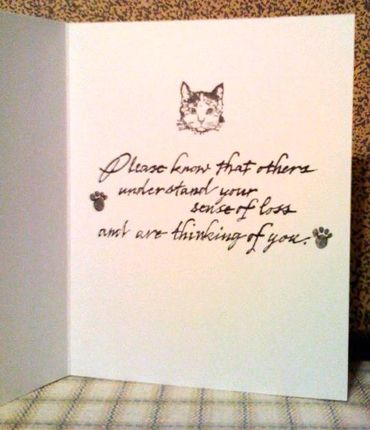 Please know that others
understand your
sense of loss
and are thinking of you.